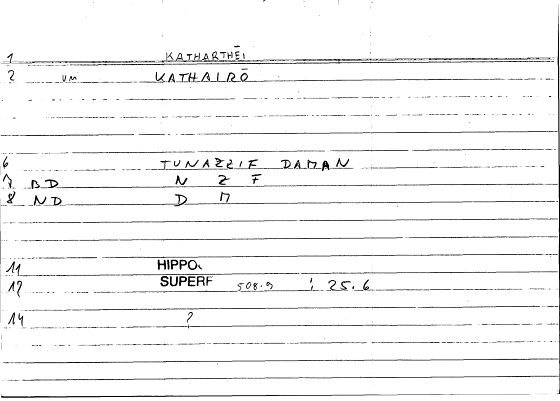 1 KATHARTHĒI
2 VM KATHAIRŌ
6 TUNAZZIF DAMAN
7 BD N Z F
8 ND D M
11 HIPPO.
12 SUPERF 508.9 : 25.6
14 ?